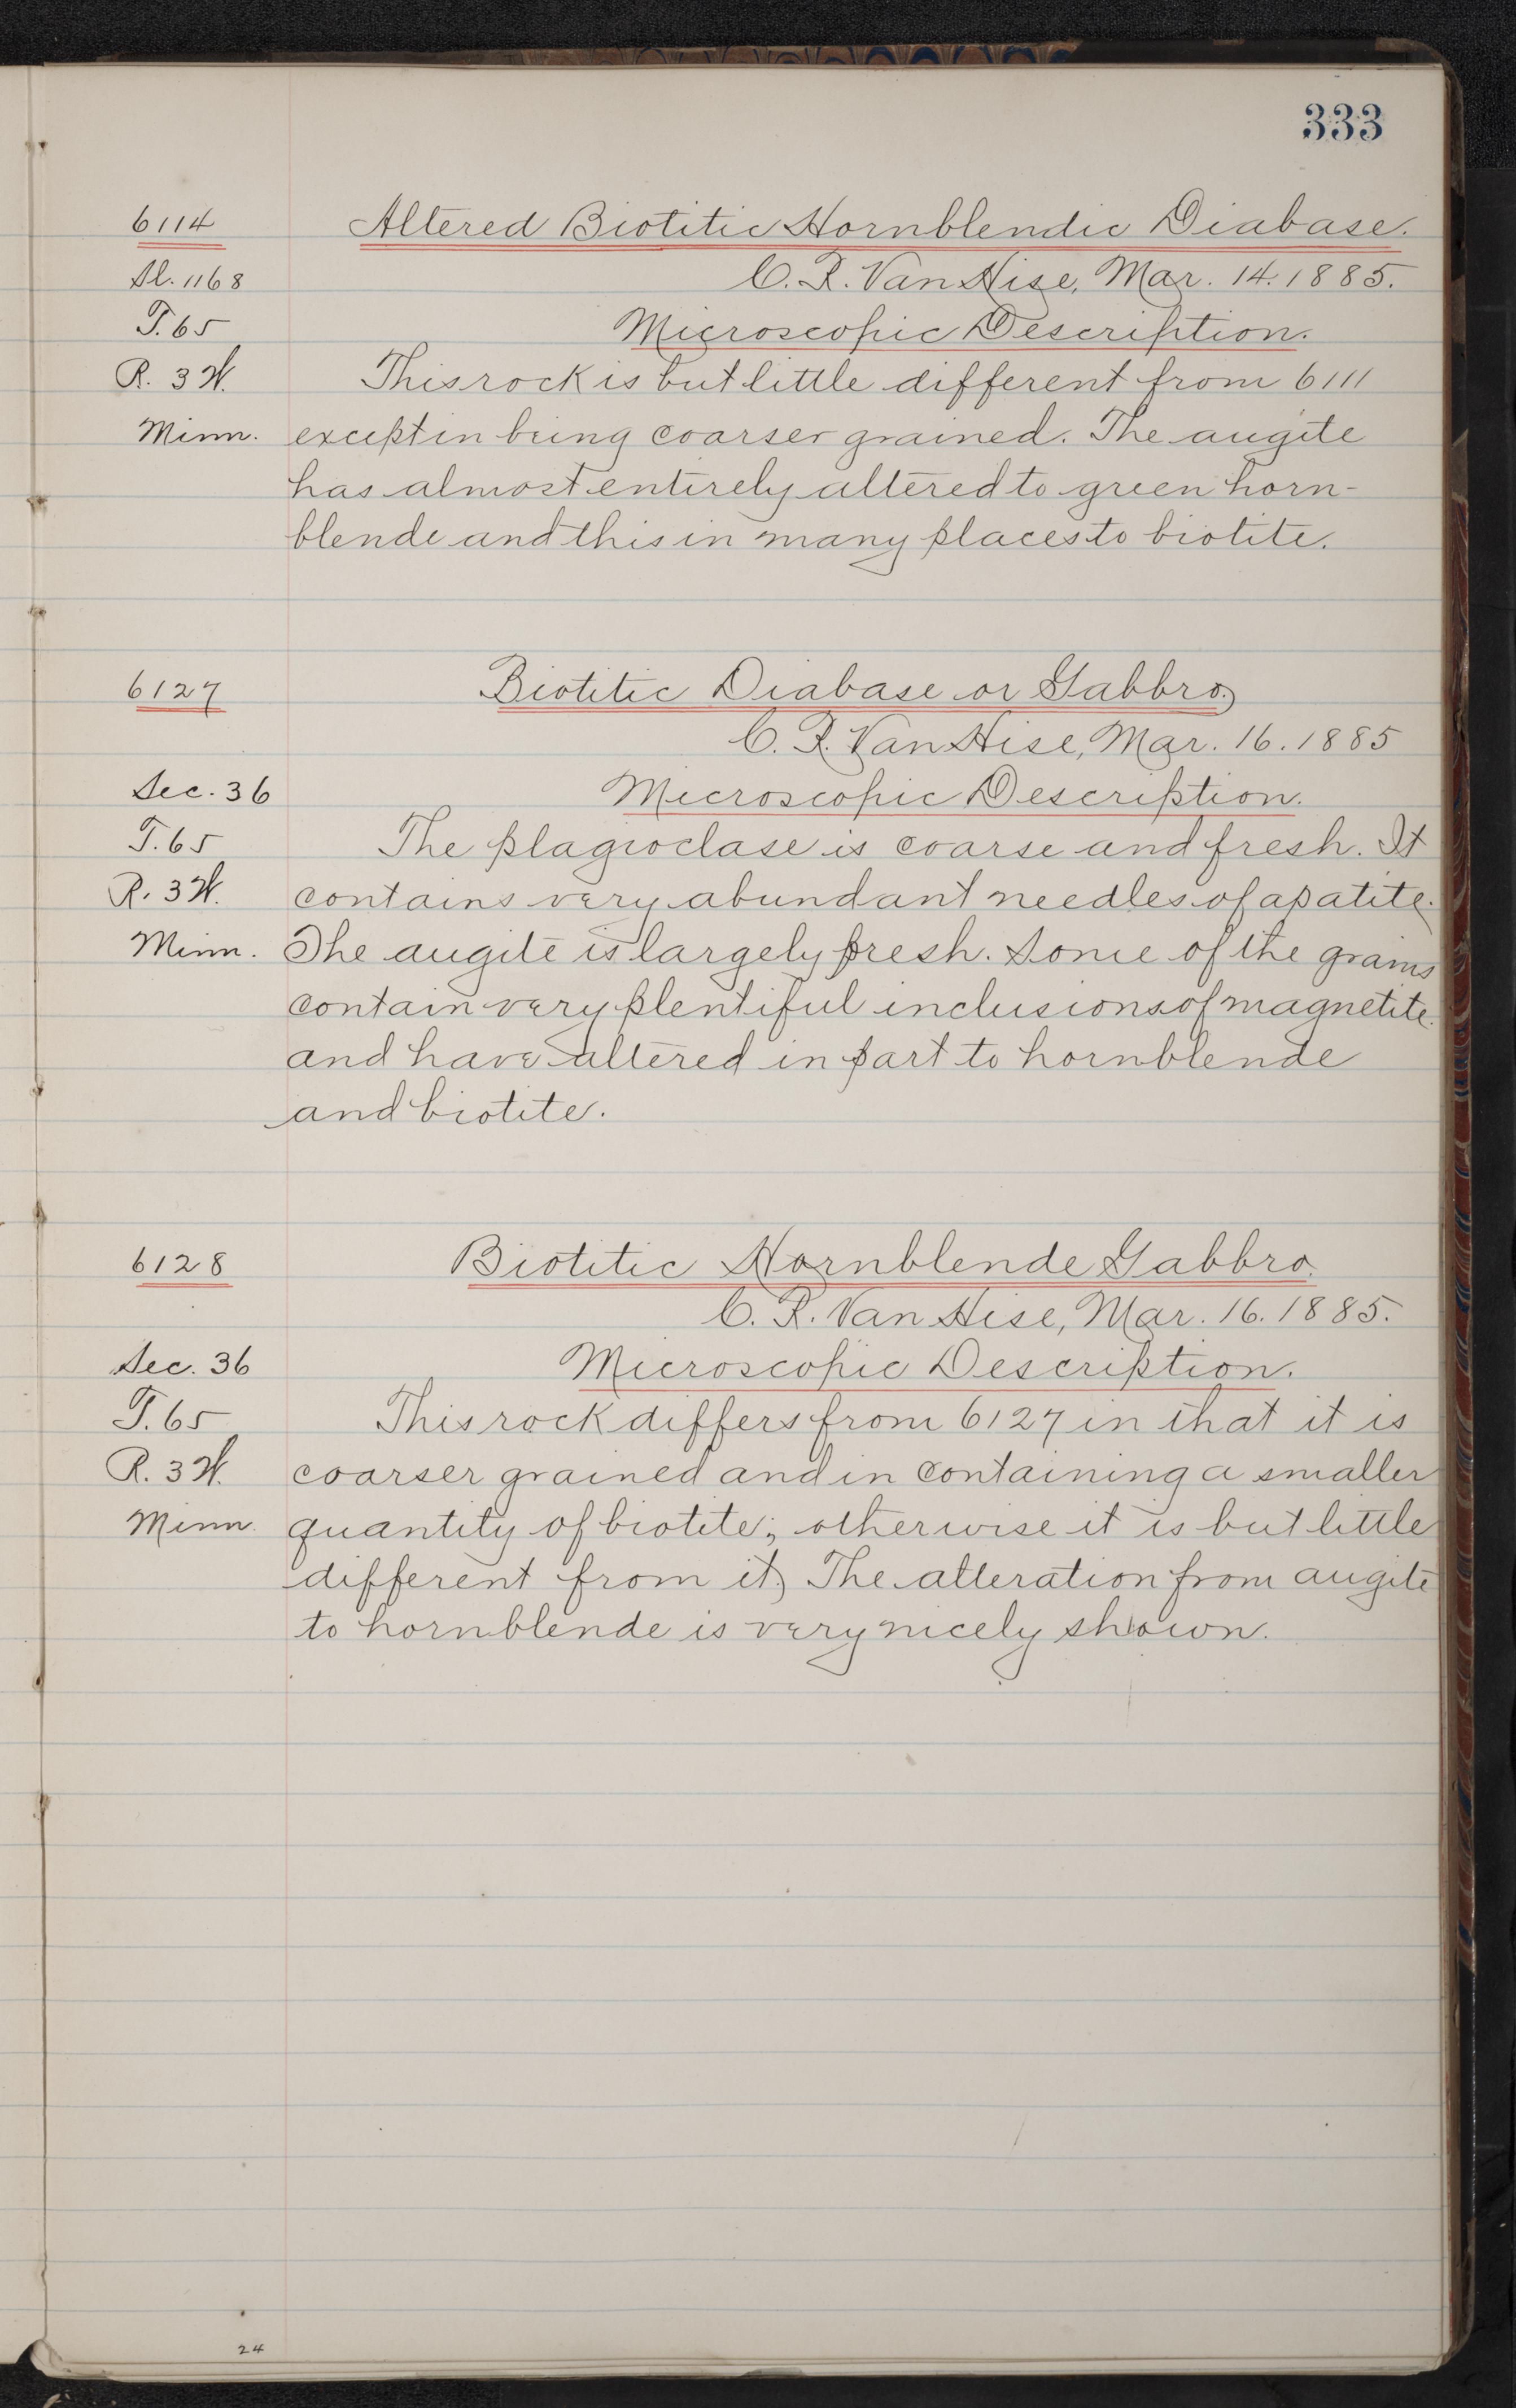 333
6114 Altered Biotitic Hornblendic Diabase.
Sl. 1168 C. R. Van Hise, Mar. 14. 1885.
T. 65 Microscopic Description.
R. 3 W. This rock is but little different from 6111
Minn. except in being coarser grained. The augite
has almost entirely altered to green horn-
blende and this in many places to biotite.
6127 Biotitic Diabase or Gabbro.
C. R. Van Hise, Mar. 16. 1885
Sec. 36 Microscopic Description.
T. 65 The plagioclase is coarse and fresh. It
R. 3 W. contains very abundant needles of apatite.
Minn. The augite is largely fresh. Some of the grains
contain very plentiful inclusions of magnetite
and have altered in part to hornblende
and biotite.
6128 Biotitic Hornblende Gabbro.
C. R. Van Hise, Mar. 16. 1885.
Sec. 36 Microscopic Description.
T. 65 This rock differs from 6127 in that it is
R. 3 W. coarser grained and in containing a smaller
Minn. quantity of biotite; otherwise it is but little
different from it. The alteration from augite
to hornblende is very nicely shown.
24